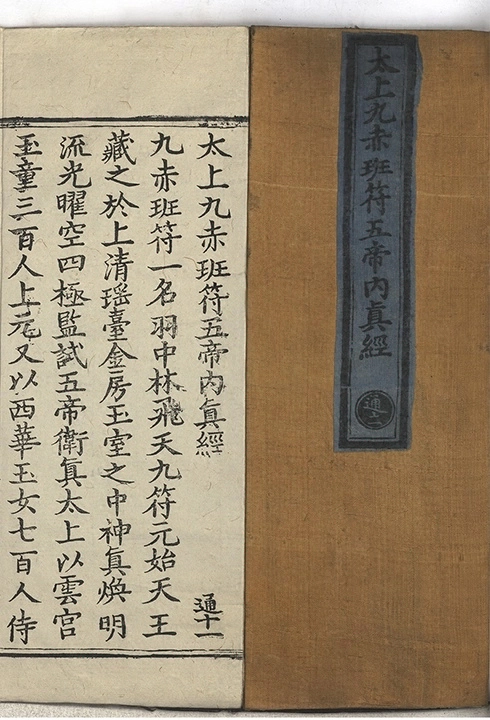 太上九赤班符五帝內真經
通十一
太上九赤班符五帝內真經
通十一
九赤班符一名羽中林飛天九符元始天王
藏之於上清瑶臺金房玉室之中神真煥明
流光曜空四極監試五帝衛真太上以雲宮
玉童三百人上元又以西華玉女七百人侍